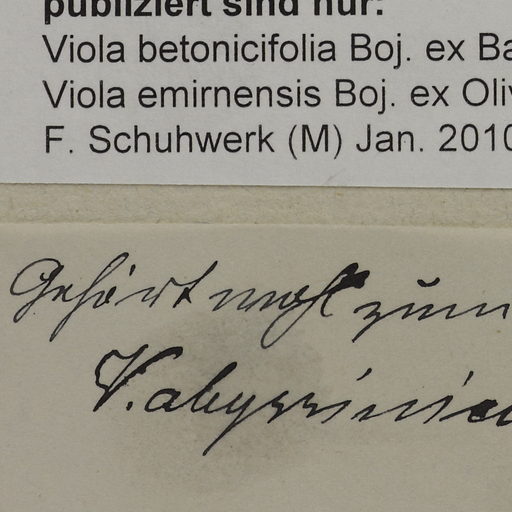 publiziert sind nur:
Viola betonicifolia Boj. ex Ba
Viola emirnensis Boj. ex Oliv
F. Schuhwerk (M) Jan. 2010
Gehört wohl zum
V. abyssinica